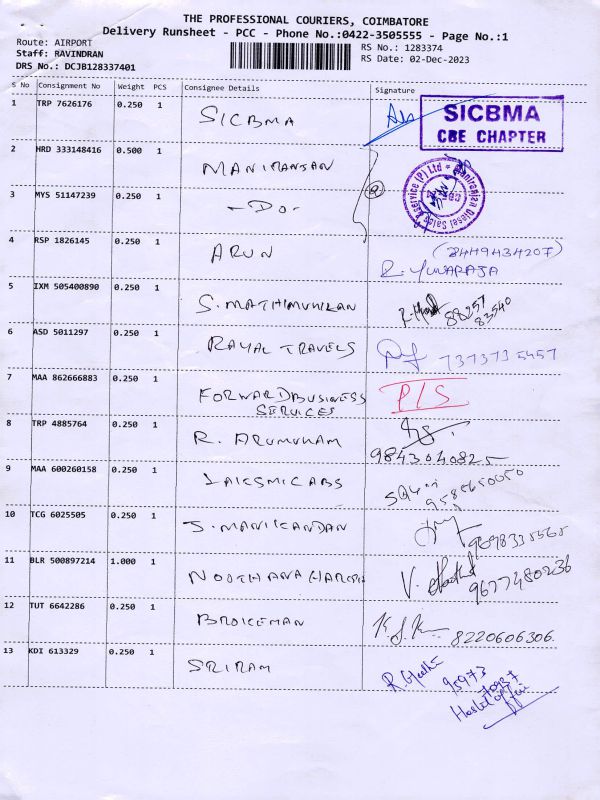 THE PROFESSIONAL COURIERS, COIMBATORE
Delivery Runsheet - PCC - Phone No.:0422-3505555 - Page No.:1
Route: AIRPORT
Staff: RAVINDRAN
DRS No.: DCJB128337401
RS No.: 1283374
RS Date: 02-Dec-2023
S No Consignment No Weight PCS Consignee Details Signature
1 TRP 7626176 0.250 1 SICBMA
SICBMA
CBE CHAPTER
2 HRD 333148416 0.500 1 MANIRANJAN
3 MYS 51147239 0.250 1 -DO-
Maniranjan Diesel Sales & Service (P) Ltd
4 RSP 1826145 0.250 1 ARUN (8449434207)
R. YUVARAJA
5 IXM 505400890 0.250 1 S. MATHIMUHILAN 88257
83540
6 ASD 5011297 0.250 1 RAYAL TRAVELS 7373735457
7 MAA 862666883 0.250 1 FORWARD BUSINESS
SERVICES
P/S
8 TRP 4885764 0.250 1 R. ARUMUHAM
9843040825
9 MAA 600260158 0.250 1 LAKSMI CABS
9585650050
10 TCG 6025505 0.250 1 S. MANIKANDAN
9698335565
11 BLR 500897214 1.000 1 NOOTHANA HARESH V.
9677480236
12 TUT 6642286 0.250 1 BROKEMAN 8220606306
13 KDI 613329 0.250 1 SRIRAM
95973